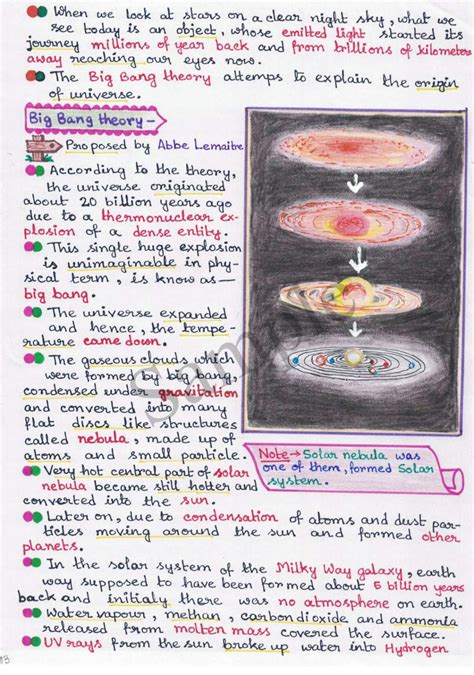 When we look at stars on a clear night sky, what we
see today is an object, whose emitted light started its
journey millions of year back and from trillions of kilometers
away reaching our eyes now.
The Big Bang theory attemps to explain the origin
of universe.
Big Bang theory -
Proposed by Abbe Lemaitre
According to the theory,
the universe originated
about 20 billion years ago
due to a thermonuclear ex-
plosion of a dense entity.
This single huge explosion
is unimaginable in phy-
sical term, is know as—
big bang.
The universe expanded
and hence, the tempe-
rature came down.
The gaseous clouds which
were formed by big bang,
condensed under gravitation
and converted into many
flat discs like structures
called nebula, made up of
atoms and small particle.
Note → Solar nebula was
one of them, formed Solar
system.
Very hot central part of solar
nebula became still hotter and
converted into the sun.
Later on, due to condensation of atoms and dust par-
ticles moving around the sun and formed other
planets.
In the solar system of the Milky Way galaxy, earth
way supposed to have been formed about 5 billion years
back and initialy there was no atmosphere on earth.
Water vapour, methan, carbondioxide and ammonia
released from molten mass covered the surface.
UV rays from the sun broke up water into Hydrogen
Sample
13